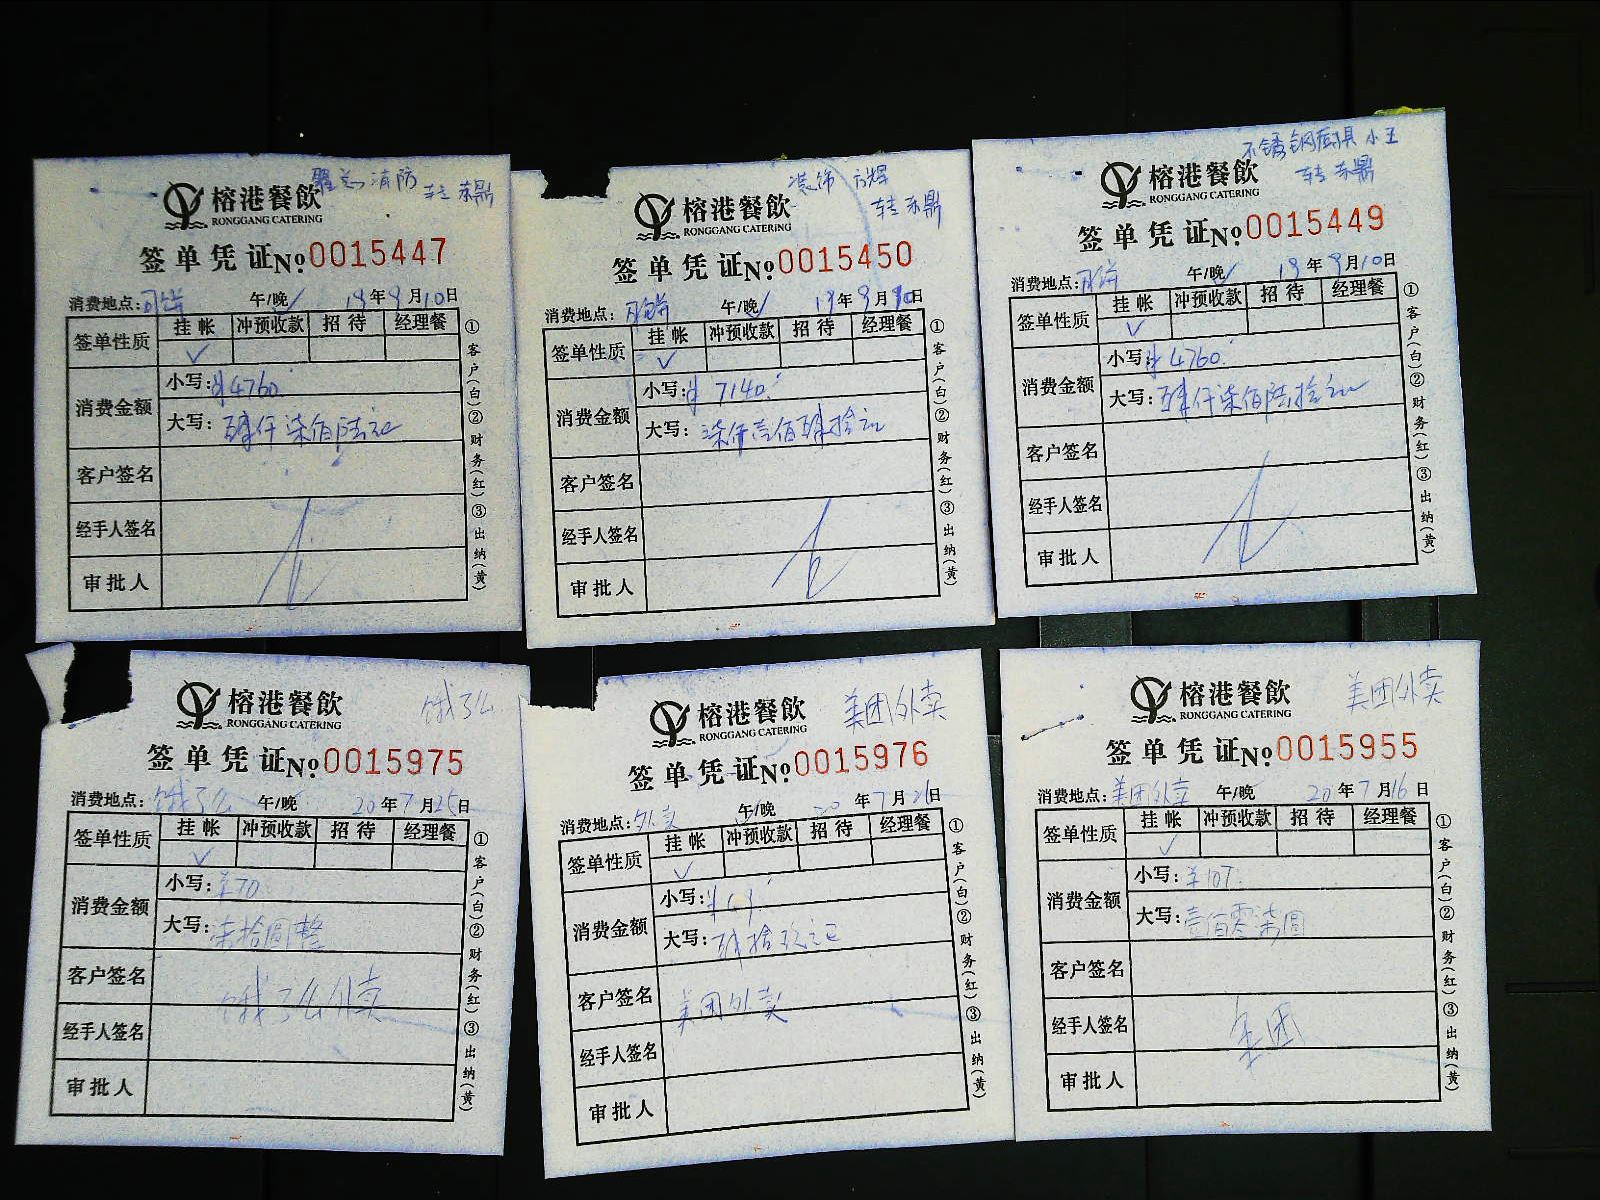 消防
转 苏鼎
榕港餐飲
RONGGANG CATERING
签单凭证 No 0015447
消费地点: 月饼 午/晚 19年9月10日
签单性质 挂帐 冲预收款 招待 经理餐
✓
消费金额 小写: ¥4760.
大写: 肆仟柒佰陆元
客户签名
经手人签名
审批人
①客户(白)②财务(红)③出纳(黄)
装饰
转 苏鼎
榕港餐飲
RONGGANG CATERING
签单凭证 No 0015450
消费地点: 月饼 午/晚 19年9月10日
签单性质 挂帐 冲预收款 招待 经理餐
✓
消费金额 小写: ¥7140.
大写: 柒仟壹佰肆拾元
客户签名
经手人签名
审批人
①客户(白)②财务(红)③出纳(黄)
不锈钢厨具 小王
转 苏鼎
榕港餐飲
RONGGANG CATERING
签单凭证 No 0015449
消费地点: 月饼 午/晚 19年9月10日
签单性质 挂帐 冲预收款 招待 经理餐
✓
消费金额 小写: ¥4760.
大写: 肆仟柒佰陆拾元
客户签名
经手人签名
审批人
①客户(白)②财务(红)③出纳(黄)
饿了么
榕港餐飲
RONGGANG CATERING
签单凭证 No 0015975
消费地点: 饿了么 午/晚 20年7月25日
签单性质 挂帐 冲预收款 招待 经理餐
✓
消费金额 小写: ¥70
大写: 柒拾圆整
客户签名 饿了么外卖
经手人签名
审批人
①客户(白)②财务(红)③出纳(黄)
美团外卖
榕港餐飲
RONGGANG CATERING
签单凭证 No 0015976
消费地点: 外卖 午/晚 20年7月26日
签单性质 挂帐 冲预收款 招待 经理餐
✓
消费金额 小写:
大写:
客户签名 美团外卖
经手人签名
审批人
①客户(白)②财务(红)③出纳(黄)
美团外卖
榕港餐飲
RONGGANG CATERING
签单凭证 No 0015955
消费地点: 美团外卖 午/晚 20年7月16日
签单性质 挂帐 冲预收款 招待 经理餐
✓
消费金额 小写: ¥107.
大写: 壹佰零柒圆
客户签名
经手人签名 美团
审批人
①客户(白)②财务(红)③出纳(黄)